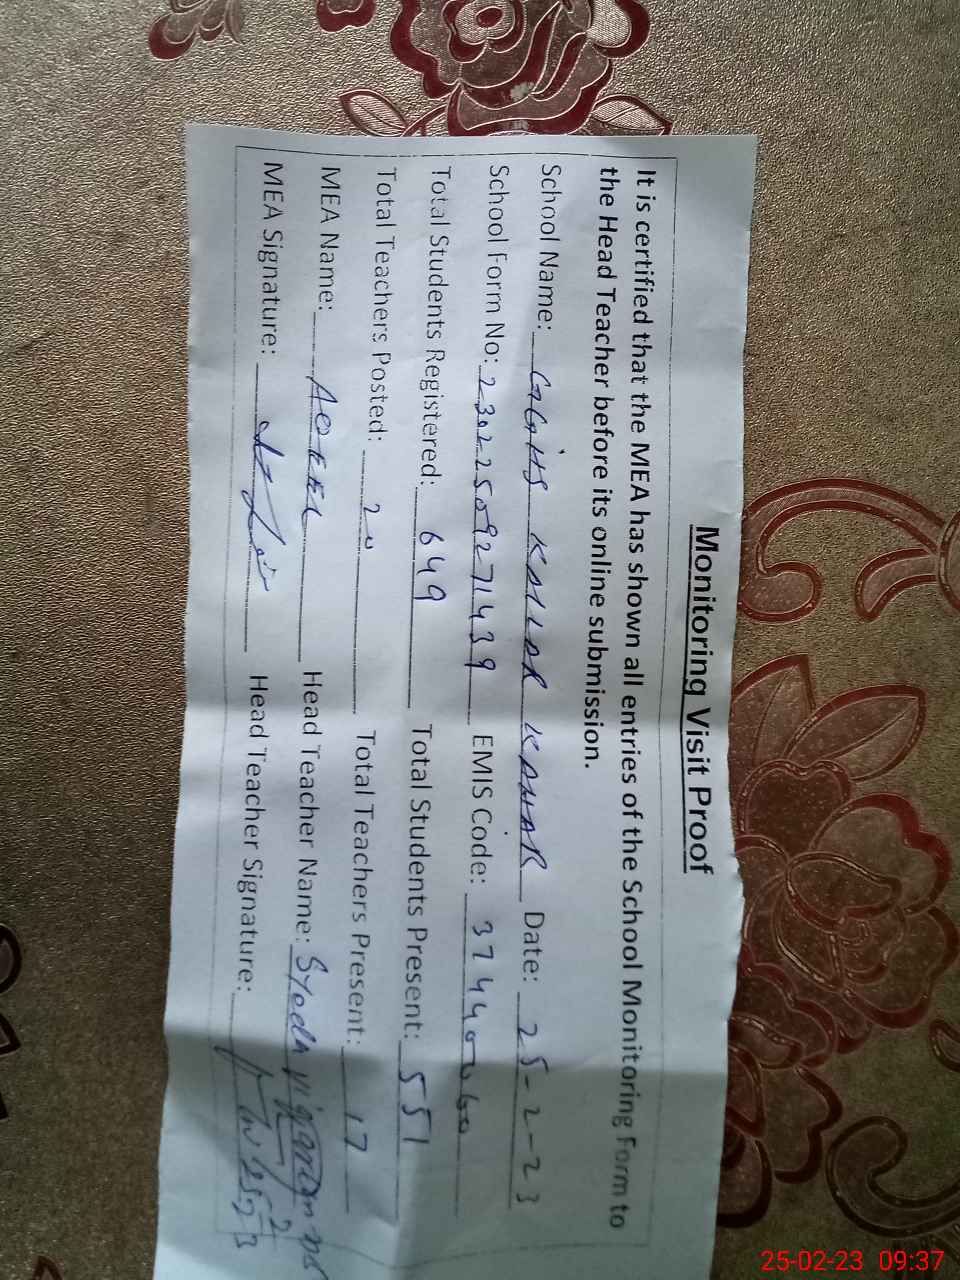 Monitoring Visit Proof
It is certified that the MEA has shown all entries of the School Monitoring Form to
the Head Teacher before its online submission.
School Name: GGHS KALLAR KAHAR Date: 25-2-23
School Form No: 23022509271439 EMIS Code: 37440060
Total Students Registered: 649 Total Students Present: 551
Total Teachers Posted: 20 Total Teachers Present: 17
MEA Name: Head Teacher Name: Syeda
MEA Signature: Head Teacher Signature:
25-02-23 09:37